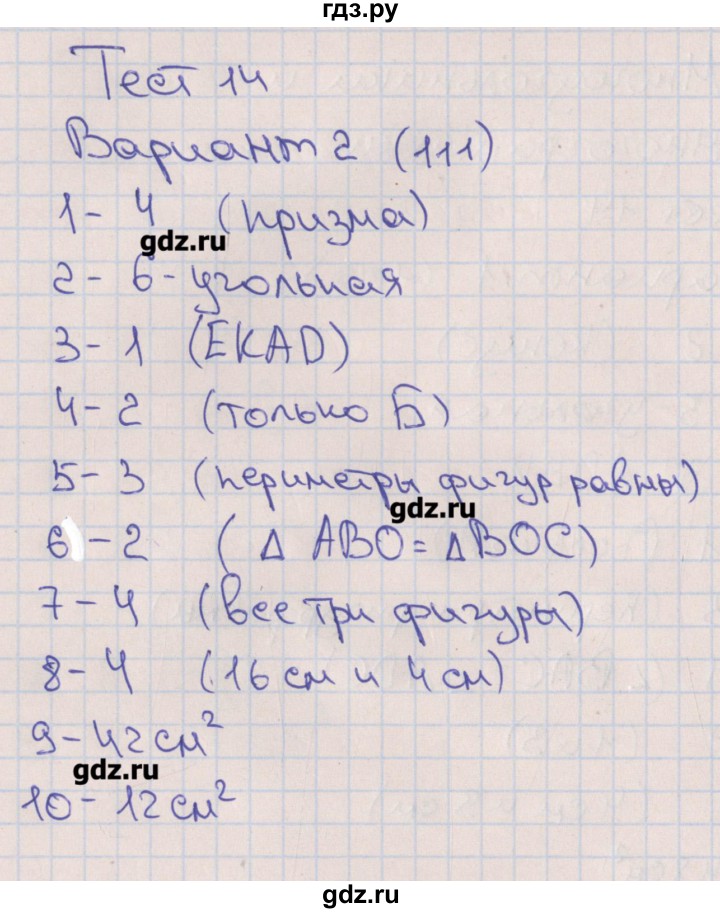 гдз.ру
Тест 14
Вариант 2 (111)
1 - 4 (призма)
gdz.ru
2 - 6 - угольная
3 - 1 (EKAD)
4 - 2 (только Б)
5 - 3 (периметры фигур равны)
gdz.ru
6 - 2 (Δ ABO = Δ BOC)
7 - 4 (все три фигуры)
8 - 4 (16 см и 4 см)
9 - 42 см²
gdz.ru
10 - 12 см²
gdz.ru